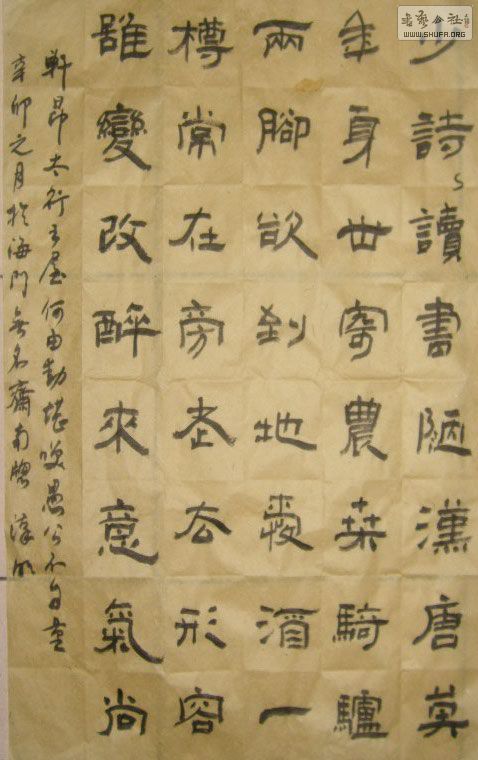 书艺公社
WWW.SHUFA.ORG
少詩讀書陋漢唐莫
年身世寄農桑騎驢
兩腳欲到地愛酒一
樽常在旁老去形容
雖變改醉來意氣尚
軒昂太行王屋何由動堪笑愚公不自量
辛卯元月於海門無名齋南窗